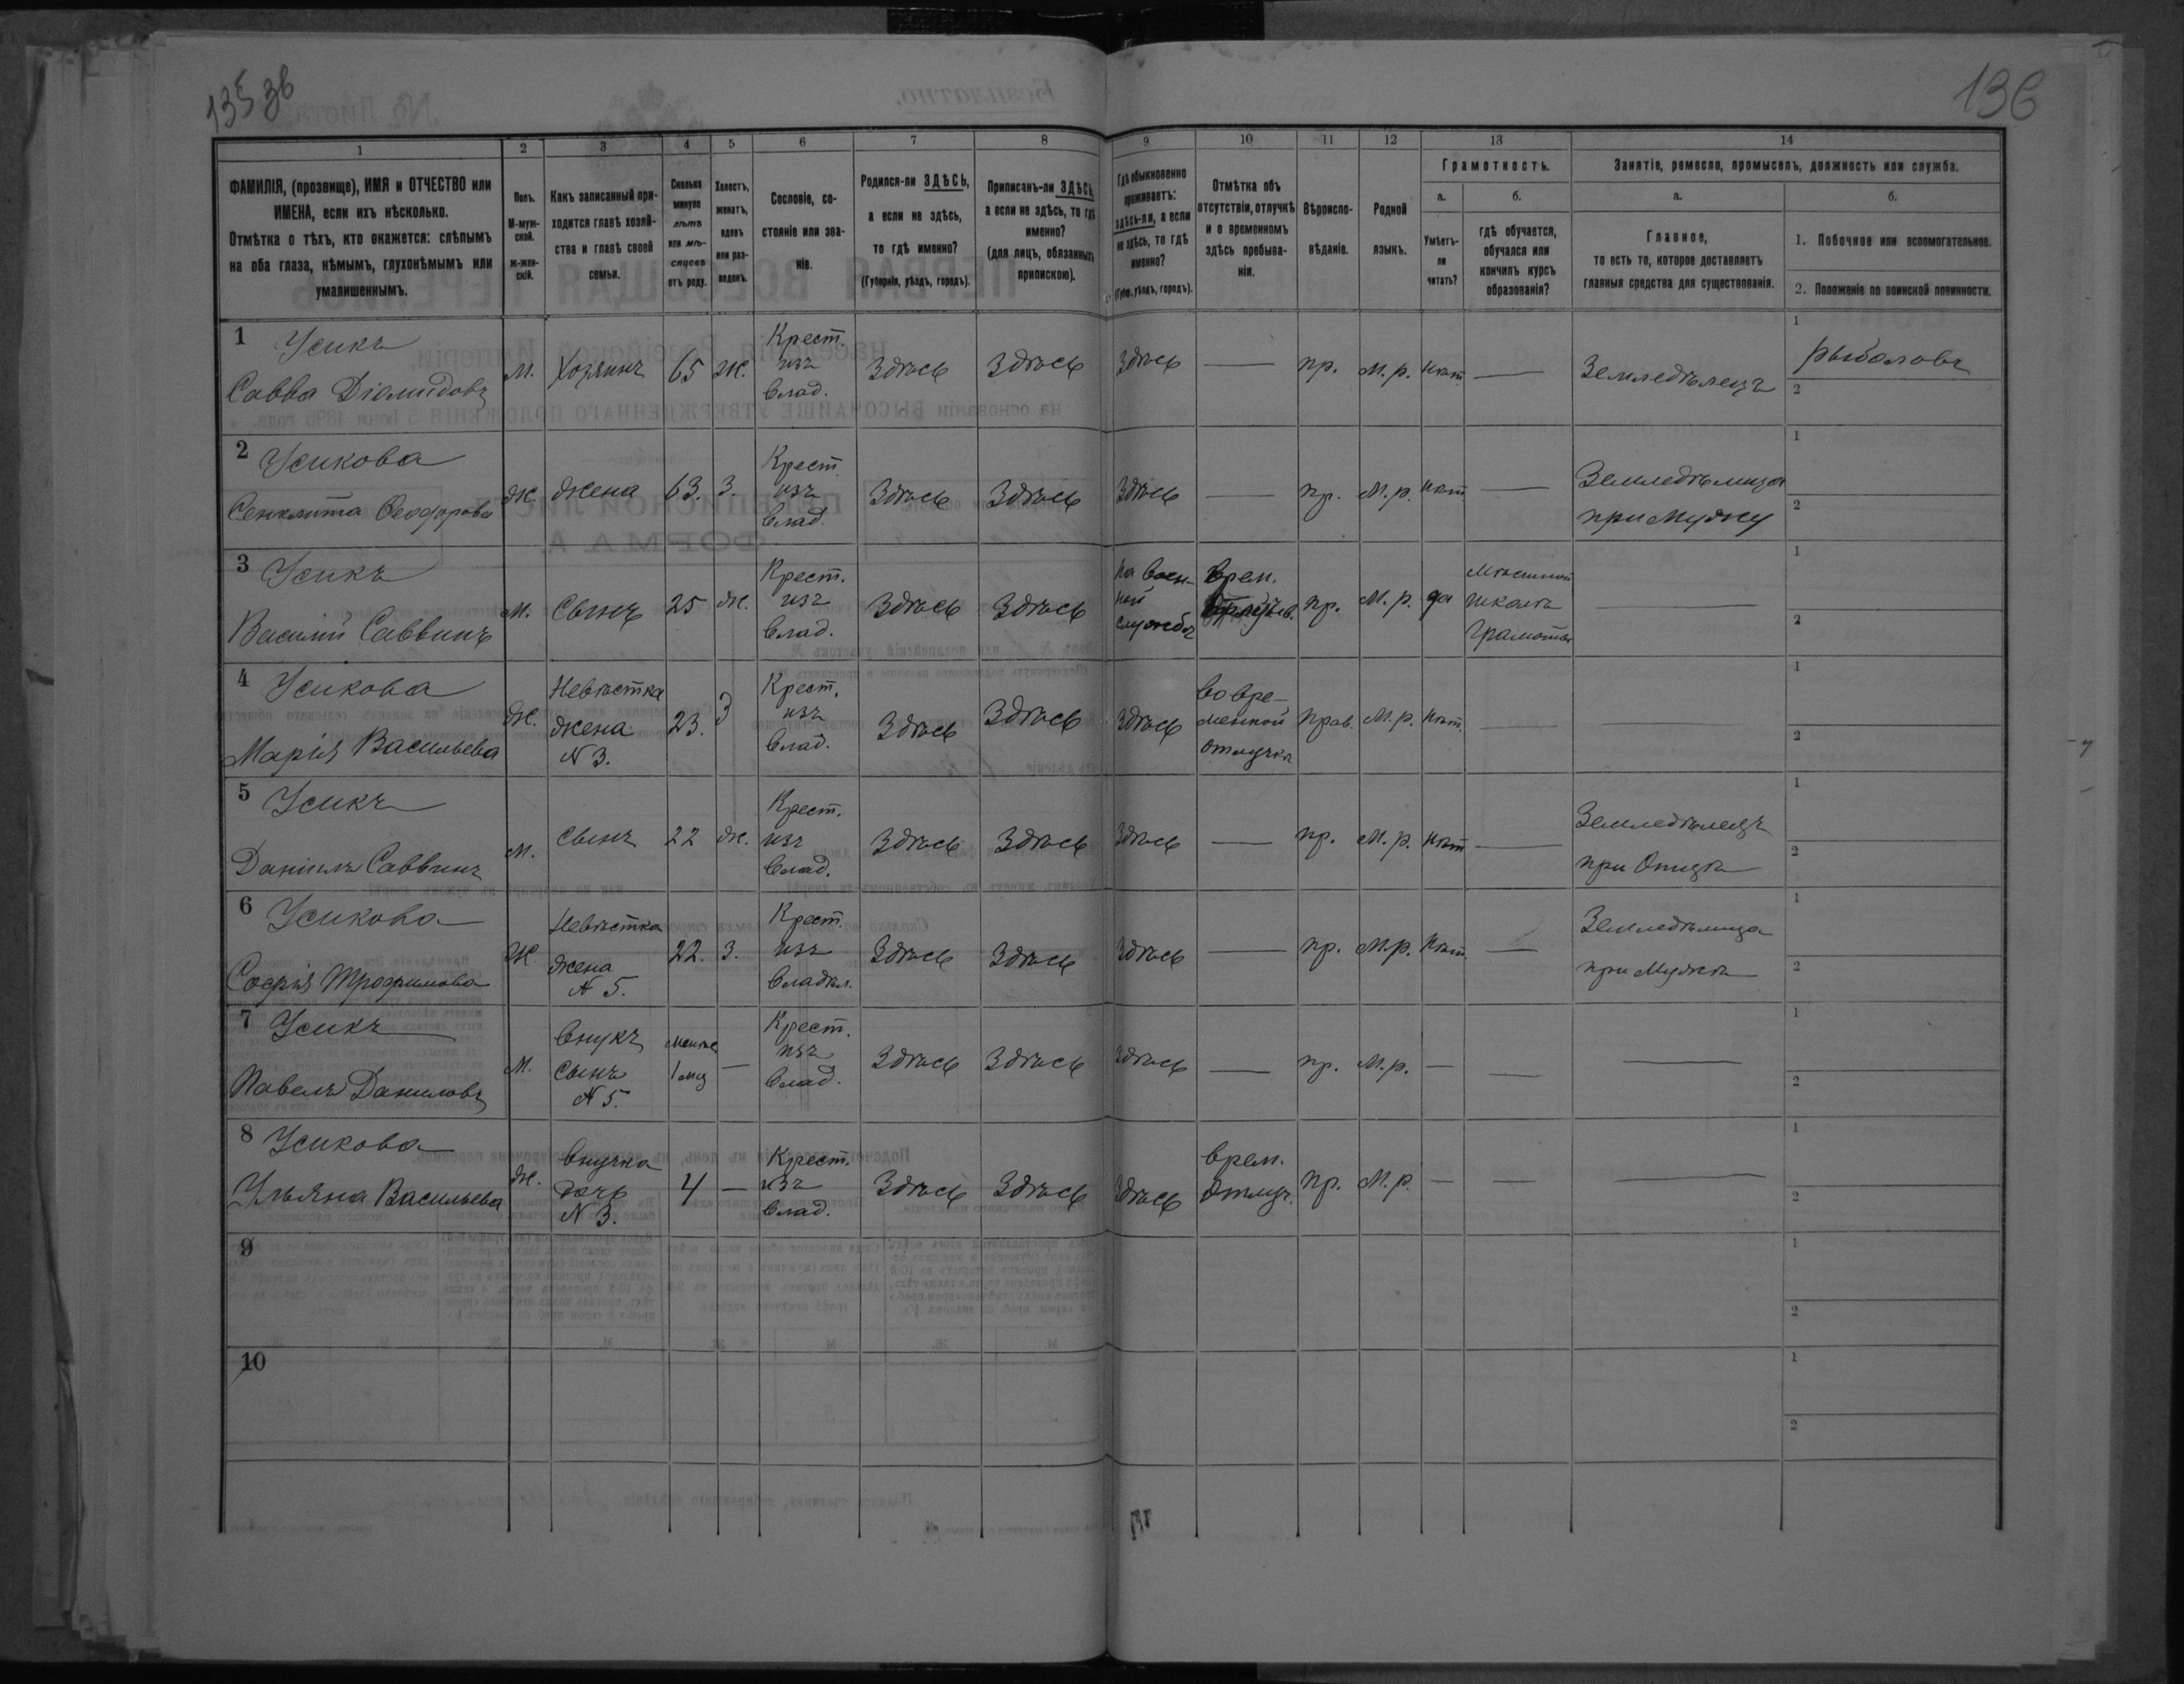 135 зв
136
1 2 3 4 5 6 7 8 9 10 11 12 13 14
ФАМИЛІЯ, (прозвище), ИМЯ и ОТЧЕСТВО или
ИМЕНА, если ихъ нѣсколько.
Отмѣтка о тѣхъ, кто окажется: слѣпымъ
на оба глаза, нѣмымъ, глухонѣмымъ или
умалишеннымъ.
Полъ.
М-муж-
ской.
ж-жен-
скій.
Какъ записанный при-
ходится главѣ хозяй-
ства и главѣ своей
семьи.
Сколько
минуло
лѣтъ
или мѣ-
сяцевъ
отъ роду.
Холостъ,
женатъ,
вдовъ
или раз-
веденъ.
Сословіе, со-
стояніе или зва-
ніе.
Родился-ли ЗДѢСЬ,
а если не здѣсь,
то гдѣ именно?
(Губернія, уѣздъ, городъ).
Приписанъ-ли ЗДѢСЬ,
а если не здѣсь, то гдѣ
именно?
(для лицъ, обязанныхъ
припискою).
Гдѣ обыкновенно
проживаетъ:
здѣсь-ли, а если
не здѣсь, то гдѣ
именно?
(Губ., уѣздъ, городъ).
Отмѣтка объ
отсутствіи, отлучкѣ
и о временномъ
здѣсь пребыва-
ніи.
Вѣроиспо-
вѣданіе.
Родной
языкъ.
Грамотность.
а.
Умѣетъ-
ли
читать?
б.
гдѣ обучается,
обучался или
кончилъ курсъ
образованія?
Занятіе, ремесло, промыселъ, должность или служба.
а.
Главное,
то есть то, которое доставляетъ
главныя средства для существованія.
б.
1. Побочное или вспомогательное.
2. Положеніе по воинской повинности.
1 Усикъ
Савва Діомидовъ
М.
Хозяинъ
65
Ж.
Крест.
изъ
влад.
Здѣсь
Здѣсь
Здѣсь
—
пр.
М. р.
нѣт
—
Земледѣлецъ
1
рыболовъ
2
2 Усикова
Сенклита Феодорова
Ж.
жена
63.
З.
Крест
изъ
влад.
Здѣсь
Здѣсь
Здѣсь
—
пр.
М. р.
нѣт
—
Земледѣлица
при мужу
1
2
3 Усикъ
Василій Саввинъ
М.
Сынъ
25
Ж.
Крест.
изъ
влад.
Здѣсь
Здѣсь
на воен-
ной
службѣ
врем.
пр.
М. р.
да
школѣ
грамоты
—
1
2
4 Усикова
Марія Васильева
Ж.
Невѣстка
жена
N 3.
23.
З
Крест.
изъ
влад.
Здѣсь
Здѣсь
Здѣсь
во вре-
менной
отлучкѣ
прав.
М. р.
нѣт.
—
—
1
2
5 Усикъ
Даніилъ Саввинъ
М.
сынъ
22
Ж.
Крест.
изъ
влад.
Здѣсь
Здѣсь
Здѣсь
—
пр.
М. р.
нѣт
—
Земледѣлецъ
при Отцѣ
1
2
6 Усикова
Софія Трофимова
Ж
Невѣстка
жена
N 5.
22.
З.
Крест.
изъ
владѣл.
Здѣсь
Здѣсь
Здѣсь
—
пр.
М. р.
нѣт.
—
Земледѣлица
при мужѣ
1
2
7 Усикъ
Павелъ Даниловъ
М.
внукъ
сынъ
N 5.
менѣе
1 мѣ
—
Крест.
изъ
влад.
Здѣсь
Здѣсь
Здѣсь
—
пр.
М. р.
—
—
—
1
2
8 Усикова
Ульяна Васильева
Ж.
внучка
дочь
N 3.
4
—
Крест.
изъ
влад.
Здѣсь
Здѣсь
Здѣсь
врем.
отлуч.
пр.
М. р.
—
—
—
1
2
9
1
2
10
1
2